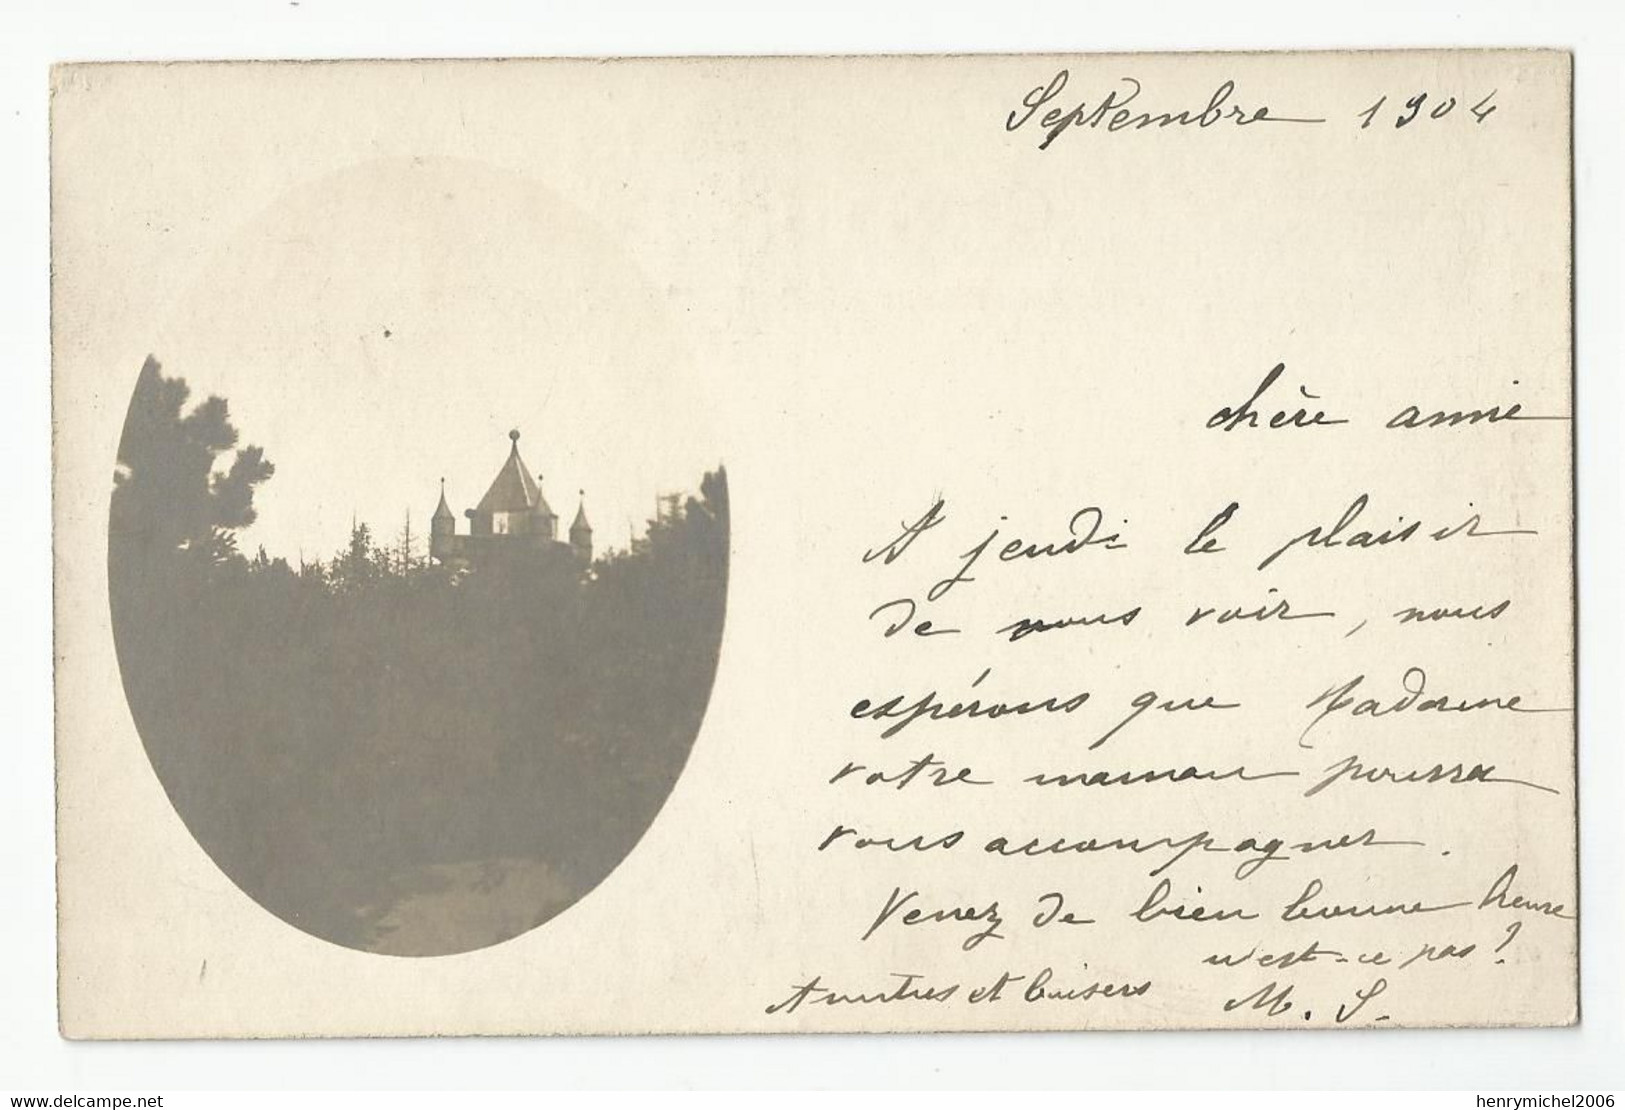 Septembre 1904
chère annie
A jeudi le plaisir
de vous voir, nous
espérons que Madame
votre maman pourra
vous accompagner.
Venez de bien bonne heure
n'est-ce pas?
Amitiés et baisers M. S.
www.delcampe.net
henrymichel2006